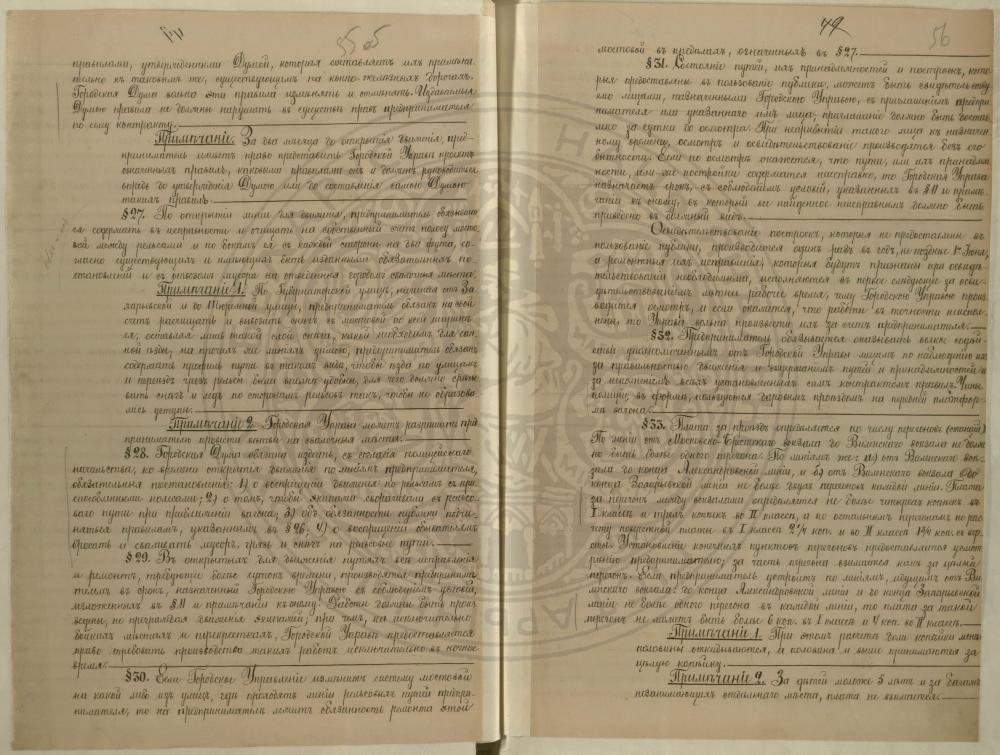 55 05
правилами, утвержденными Думой, которая составляетъ ихъ примѣни-
тельно къ таковымъ же, существующимъ на конно-желѣзныхъ дорогахъ.
Городская Дума вольна эти правила измѣнять и отмѣнять. Издаваемыя
Думою правила не должны нарушать въ существѣ правъ предпринимателя
по сему контракту.
Примѣчаніе. За два мѣсяца до открытія движенія, пред-
приниматель имѣетъ право представить Городской Управѣ проектъ
означенныхъ правилъ, каковыми правилами онъ и долженъ руководиться
впредь до утвержденія Думою или до составленія самою Думою
такихъ правилъ.
§27. По открытіи линіи для движенія, предприниматель обязывает-
ся содержать въ исправности и очищать на собственный счетъ полосу мосто-
вой между рельсами и по бокамъ ея съ каждой стороны на два фута, со-
гласно существующихъ и имѣющихъ быть изданными обязательныхъ по-
становленій и съ отвозомъ мусора на отведенныя городомъ свалочныя мѣста.
Примѣчаніе 1. По Губернаторской улицѣ, начиная отъ За-
харьевской и до Торговой улицы, предприниматель обязанъ на свой
счетъ расчищать и вывозить снѣгъ съ мостовой во всей ширинѣ
ея, оставляя лишь такой слой снѣга, какой необходимъ для сан-
ной ѣзды; на прочихъ же линіяхъ зимою, предприниматель обязанъ
содержать профиль пути въ такомъ видѣ, чтобы ѣзда по улицамъ
и переѣздъ чрезъ рельсы были вполнѣ удобны, для чего должно сравни-
вать снѣгъ и ледъ по сторонамъ рельсовъ такъ, чтобы не образова-
лись уступы.
Примѣчаніе 2. Городская Управа можетъ разрѣшить пред-
принимателю провести вѣтви на свалочныя мѣста.
§28. Городская Дума обязана издать, съ согласія полицейскаго
начальства, ко времени открытія движенія по линіямъ предпринимателя,
обязательныя постановленія: 1) о воспрещеніи движенія по рельсамъ съ при-
способленными колесами; 2) о томъ, чтобы экипажи сворачивали съ рельсо-
ваго пути при приближеніи вагона; 3) объ обязанности публики подчи-
няться правиламъ, указаннымъ въ §26; 4) о воспрещеніи обывателямъ
бросать и сваливать мусоръ, грязь и снѣгъ на рельсовые пути.
§29. Въ открытыхъ для движенія путяхъ всѣ исправленія
и ремонтъ, требующіе болѣе сутокъ времени, производятся предпринима-
телемъ въ срокъ, назначенный Городскою Управою съ соблюденіемъ условій,
изложенныхъ въ §11 и примѣчаніи къ оному. Работы должны быть произ-
ведены, не преграждая движенія экипажей; при чемъ, на исключительно
бойкихъ мѣстахъ и перекресткахъ, Городской Управѣ предоставляется
право требовать производства такихъ работъ исключительно въ ночное
время.
§30. Если Городское Управленіе измѣнитъ систему мостовой
на какой либо изъ улицъ, гдѣ проходятъ линіи рельсовыхъ путей предпри-
нимателя, то на предпринимателѣ лежитъ обязанность ремонта этой
49
56
мостовой въ предѣлахъ, означенныхъ въ §27.
§31. Состояніе путей, ихъ принадлежностей и построекъ, кото-
рыя предоставлены въ пользованіе публики, можетъ быть свидѣтельству-
емо лицами, назначенными Городскою Управою, съ приглашеніемъ предпри-
нимателя или указаннаго имъ лица; приглашеніе должно быть достав-
лено за сутки до осмотра. При неприбытіи такого лица къ назначен-
ному времени, осмотръ и освидѣтельствованіе производятся безъ его
бытности. Если по осмотру окажется, что пути, или ихъ принадлеж-
ности, или же постройки содержатся неисправно, то Городская Управа
назначаетъ срокъ, съ соблюденіемъ условій, указанныхъ въ §11 и примѣ-
чаніи къ оному, въ который все найденное неисправнымъ должно быть
приведено въ должный видъ.
Освидѣтельствованіе построекъ, которыя не предоставлены въ
пользованіе публики, производится одинъ разъ въ годъ, не позднѣе 1го Іюня,
а ремонтныя ихъ исправленія, которыя будутъ признаны при освидѣ-
тельствованіи необходимыми, исполняются въ первое слѣдующее за осви-
дѣтельствованіемъ лѣтнее рабочее время, чему Городскою Управою произ-
водится осмотръ, и если окажется, что работы въ точности неиспол-
нены, то Управа вольна произвести ихъ за счетъ предпринимателя.
§32. Предприниматель обязывается оказывать всякое содѣй-
ствіе уполномоченнымъ отъ Городской Управы лицамъ по наблюденію какъ
за правильностью движенія и содержаніемъ путей и принадлежностей, такъ и
за исполненіемъ всѣхъ установленныхъ симъ контрактомъ правилъ. Чины
полиціи, въ формѣ, пользуются даровымъ проѣздомъ на передней платфор-
мѣ вагона.
§33. Плата за проѣздъ опредѣляется по числу перегоновъ (станцій).
По линіи отъ Московско-Брестскаго вокзала до Виленскаго вокзала не долж-
но быть болѣе одного перегона. По линіямъ же: а) отъ Виленскаго вок-
зала до конца Александровской линіи, и б) отъ Виленскаго вокзала до
конца Захарьевской линіи не болѣе двухъ перегоновъ каждой линіи. Плата
за перегонъ между вокзалами опредѣляется не болѣе четырехъ копѣекъ въ
I классѣ и трехъ копѣекъ во II классѣ, а по остальнымъ перегонамъ по рас-
чету поверстной платы въ I классѣ 2¼ коп. и во II классѣ 1¾ коп. съ вер-
сты. Установленіе конечныхъ пунктовъ перегоновъ предоставляется усмот-
рѣнію предпринимателю; за часть перегона взимается какъ за цѣлый
перегонъ. Если предприниматель устроитъ по линіямъ, идущимъ отъ Ви-
ленскаго вокзала: до конца Александровской линіи и до конца Захарьевской
линіи не болѣе одного перегона въ каждой линіи, то плата за такой
перегонъ не можетъ быть болѣе 6 коп. въ I классѣ и 4 коп. во II классѣ.
Примѣчаніе 1. При этомъ расчетѣ доли копѣйки менѣе
половины откидываются, а половина и выше принимаются за
цѣлую копѣйку.
Примѣчаніе 2. За дѣтей моложе 5 лѣтъ и за багажъ
незанимающихъ отдѣльнаго мѣста, плата не взимается.